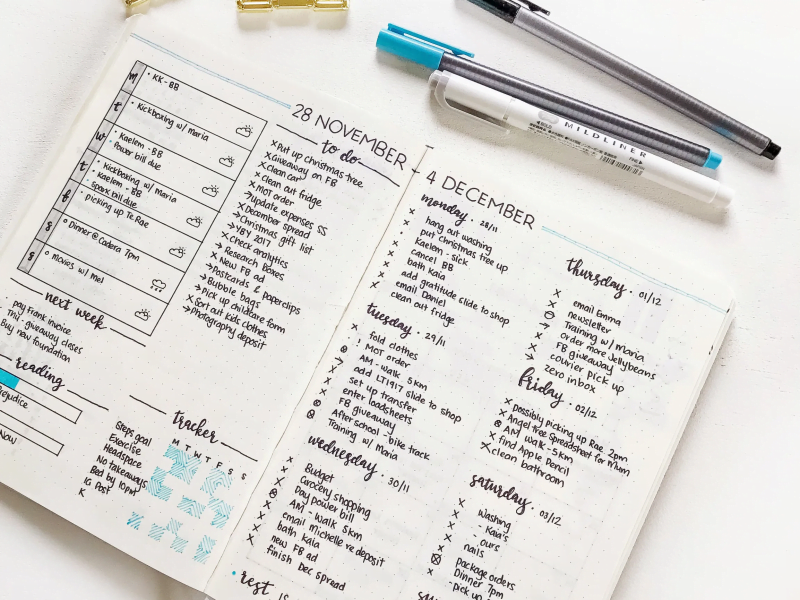 M
• KK - BB
t
• Kickboxing w/ maria
w
• Kaelem - BB
• Power bill due
t
• Kickboxing w/ Maria
• Kaelem - BB
• Spark bill due
f
• picking up Te Rae
s
° Dinner @ Cadera 7pm
s
° movies w/ mel
next week
pay Frank invoice
Thul giveaway closes
Buy new foundation
reading
Prejudice
Now
28 NOVEMBER
to do
x Put up christmas tree
x Giveaway on FB
x clean car
x Clean out fridge
x MOT order
→ update expenses SS
x December spread
→ Christmas gift list
→ YBY 2017
x Check analytics
→ Research Boxes
x New FB ad
→ Postcards & paperclips
→ Bubble bags
x pick up childcare form
x Sort out kids clothes
→ Photography deposit
tracker
M T W T F S S
Steps goal
Exercise
Headspace
No takeaways
Bed by 10pm
IG Post
K
4 DECEMBER
monday • 28/11
x hang out washing
• put christmas tree up
x Kaelem - sick
x cancel BB
x bath kaia
x add gratitude slide to shop
x email Daniel
x clean out fridge
tuesday • 29/11
x fold clothes
! MOT order
⊗ AM - walk 5km
→ add LT1917 slide to shop
x set up transfer
x enter loadsheets
x FB giveaway
⊗ After school - bike track
⊗ Training w/ Maria
wednesday • 30/11
x Budget
x Grocery shopping
⊗ Day power bill
x AM - walk 5km
x email Michelle re deposit
x bath kaia
x new FB ad
x finish Dec spread
• rest is
thursday • 01/12
x email Emma
x newsletter
⊖ Training w/ Maria
→ order more Jellybeans
x FB giveaway
x courier pick up
→ zero inbox
friday • 02/12
x possibly picking up Rae 2pm
x Angel tree Spreadsheet for Mum
⊗ AM walk - 5km
x find Apple Pencil
x clean bathroom
saturday • 03/12
x washing
x - Kaia's
x - ours
x nails
x package orders
⊗ Dinner 7pm
x - pick up
MILDLINER
FINE